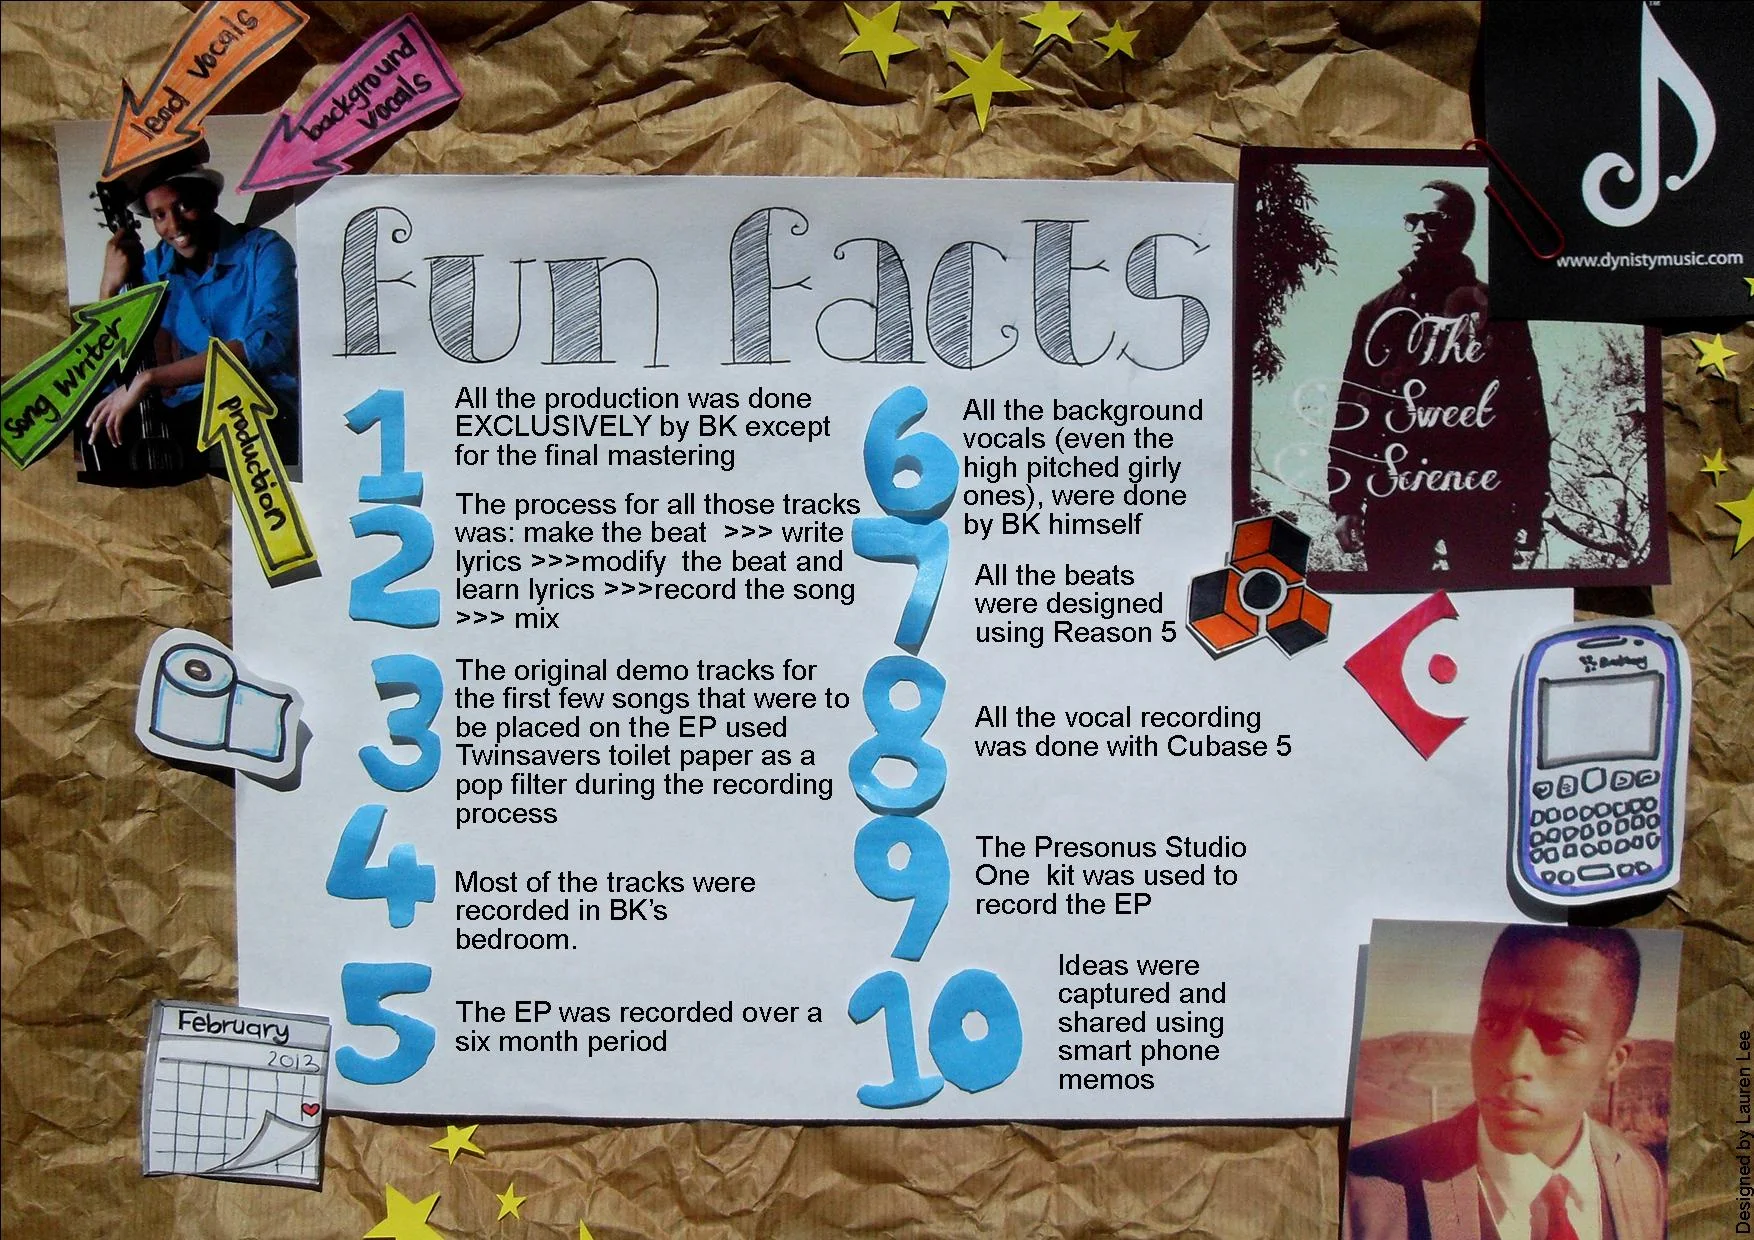 lead vocals
background
vocals
song writer
production
fun facts
1
All the production was done
EXCLUSIVELY by BK except
for the final mastering
2
The process for all those tracks
was: make the beat  >>> write
lyrics >>>modify  the beat and
learn lyrics >>>record the song
>>> mix
3
The original demo tracks for
the first few songs that were to
be placed on the EP used
Twinsavers toilet paper as a
pop filter during the recording
process
4
Most of the tracks were
recorded in BK’s
bedroom.
5
The EP was recorded over a
six month period
6
All the background
vocals (even the
high pitched girly
ones), were done
by BK himself
7
All the beats
were designed
using Reason 5
8
All the vocal recording
was done with Cubase 5
9
The Presonus Studio
One  kit was used to
record the EP
10
Ideas were
captured and
shared using
smart phone
memos
www.dynistymusic.com
The
Sweet
Science
February
2013
Designed by Lauren Lee